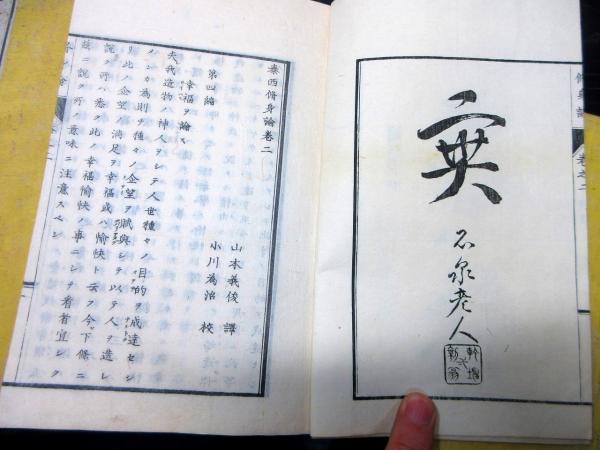 實
石泉老人
脩身論
卷之二
泰西脩身論卷二
山本義俊 譯
小川為治 校
第四編
幸福ヲ論ス
夫我造物ノ神人ヲシテ人世種々ノ目的ヲ成達セシ
メンカ為則チ種々ノ企望ヲ賦與シテ以テ人ヲ造レ
リ此ノ企望ノ満足ヲ幸福或ハ愉快ト云フ今下條ニ
説ク所ハ悉ク此ノ幸福愉快ノ事ニシテ看者宜シク
故ニ説ク所ノ意味ニ注意スベシ